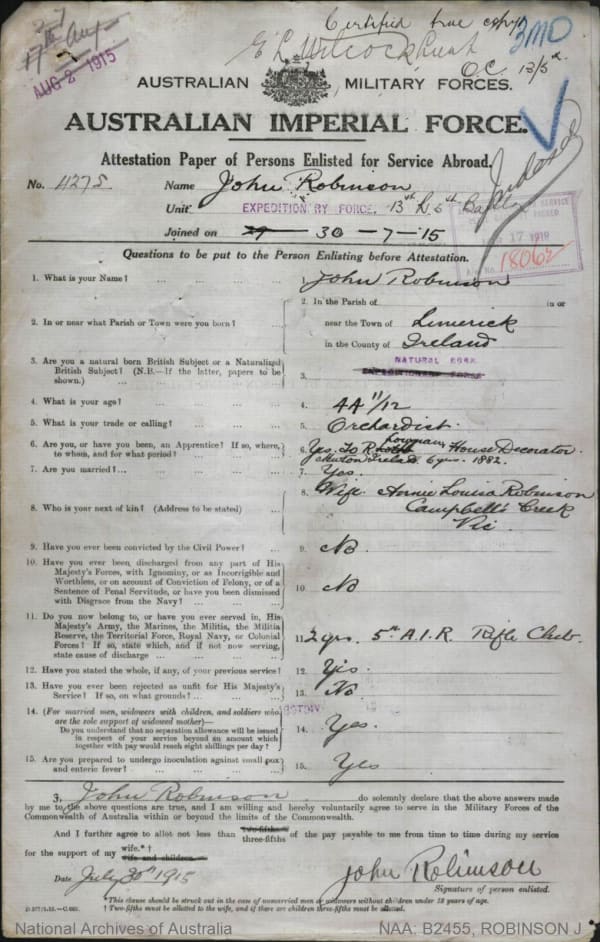 Certified true copy
3MD
17th Aug
AUG 2 1915
O.C. 13/5th
AUSTRALIAN MILITARY FORCES.
AUSTRALIAN IMPERIAL FORCE.
Attestation Paper of Persons Enlisted for Service Abroad.
No. 4275. Name John Robinson
Unit EXPEDITIONARY FORCE. 13th 6th
Joined on 29 30-7-15
17 1918
18062
Questions to be put to the Person Enlisting before Attestation.
1. What is your Name? ... ... ... ... 1. John Robinson
2. In or near what Parish or Town were you born? ... 2. In the Parish of in or
near the Town of Limerick
in the County of Ireland
3. Are you a natural born British Subject or a Naturalized
British Subject? (N.B.—If the latter, papers to be
shown.) ... ... ... ... 3. NATURAL BORN
4. What is your age? ... ... ... ... 4. 44 11/12
5. What is your trade or calling? ... ... ... 5. Orchardist.
6. Are you, or have you been, an Apprentice? If so, where,
to whom, and for what period? ... ... ... 6. Yes. To R House Decorator.
Ireland. 6 yrs. 1882.
7. Are you married? ... ... ... ... 7. Yes.
8. Who is your next of kin? (Address to be stated) ... 8. Wife. Annie Louisa Robinson
Campbell's Creek
Vic.
9. Have you ever been convicted by the Civil Power? ... 9. No
10. Have you ever been discharged from any part of His
Majesty's Forces, with Ignominy, or as Incorrigible and
Worthless, or on account of Conviction of Felony, or of a
Sentence of Penal Servitude, or have you been dismissed
with Disgrace from the Navy? ... ... ... 10. No
11. Do you now belong to, or have you ever served in, His
Majesty's Army, the Marines, the Militia, the Militia
Reserve, the Territorial Force, Royal Navy, or Colonial
Forces? If so, state which, and if not now serving,
state cause of discharge ... ... ... 11. 2 yrs. 5th A.I.R. Rifle Club.
12. Have you stated the whole, if any, of your previous service? 12. Yes.
13. Have you ever been rejected as unfit for His Majesty's
Service? If so, on what grounds? ... ... ... 13. No
14. (For married men, widowers with children, and soldiers who
are the sole support of widowed mother)—
Do you understand that no separation allowance will be issued
in respect of your service beyond an amount which
together with pay would reach eight shillings per day? 14. Yes.
15. Are you prepared to undergo inoculation against small pox
and enteric fever? ... ... ... ... 15. Yes
I, John Robinson do solemnly declare that the above answers made
by me to the above questions are true, and I am willing and hereby voluntarily agree to serve in the Military Forces of the
Commonwealth of Australia within or beyond the limits of the Commonwealth.
And I further agree to allot not less than two-fifths three-fifths of the pay payable to me from time to time during my service
for the support of my wife.* † wife and children.
Date July 30th 1915
John Robinson
Signature of person enlisted.
*This clause should be struck out in the case of unmarried men or widowers without children under 18 years of age.
† Two-fifths must be allotted to the wife, and if there are children three-fifths must be allotted.
National Archives of Australia
NAA: B2455, ROBINSON J